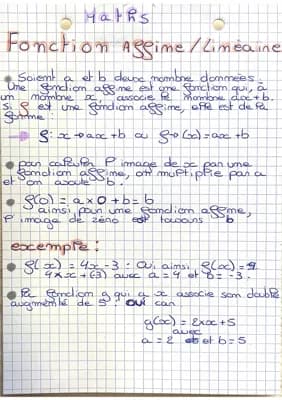 Maths
Fonction Affine/Linéaire
Soient a et b deux nombre données.
Une fonction affine est une fonction qui, à
un nombre x, associe le nombre ax+b.
Si f est une fonction affine, elle est de la
forme :
f: x → ax+b ou f→(x)=ax+b
pour calculer l'image de x par une
fonction affine, on multiplie par a
et on ajoute b.
f(0) = a×0+b=b
ainsi, pour une fonction affine,
l'image de zéro est toujours b
excemple :
f(x) = 4x-3 : Oui, ainsi, f(x)=
4×x+(-3) avec a=4 et b=-3.
la fonction g qui a x associe son double
augmenté de 5 : oui car
g(x) = 2×x+5
avec
a=2 et b=5